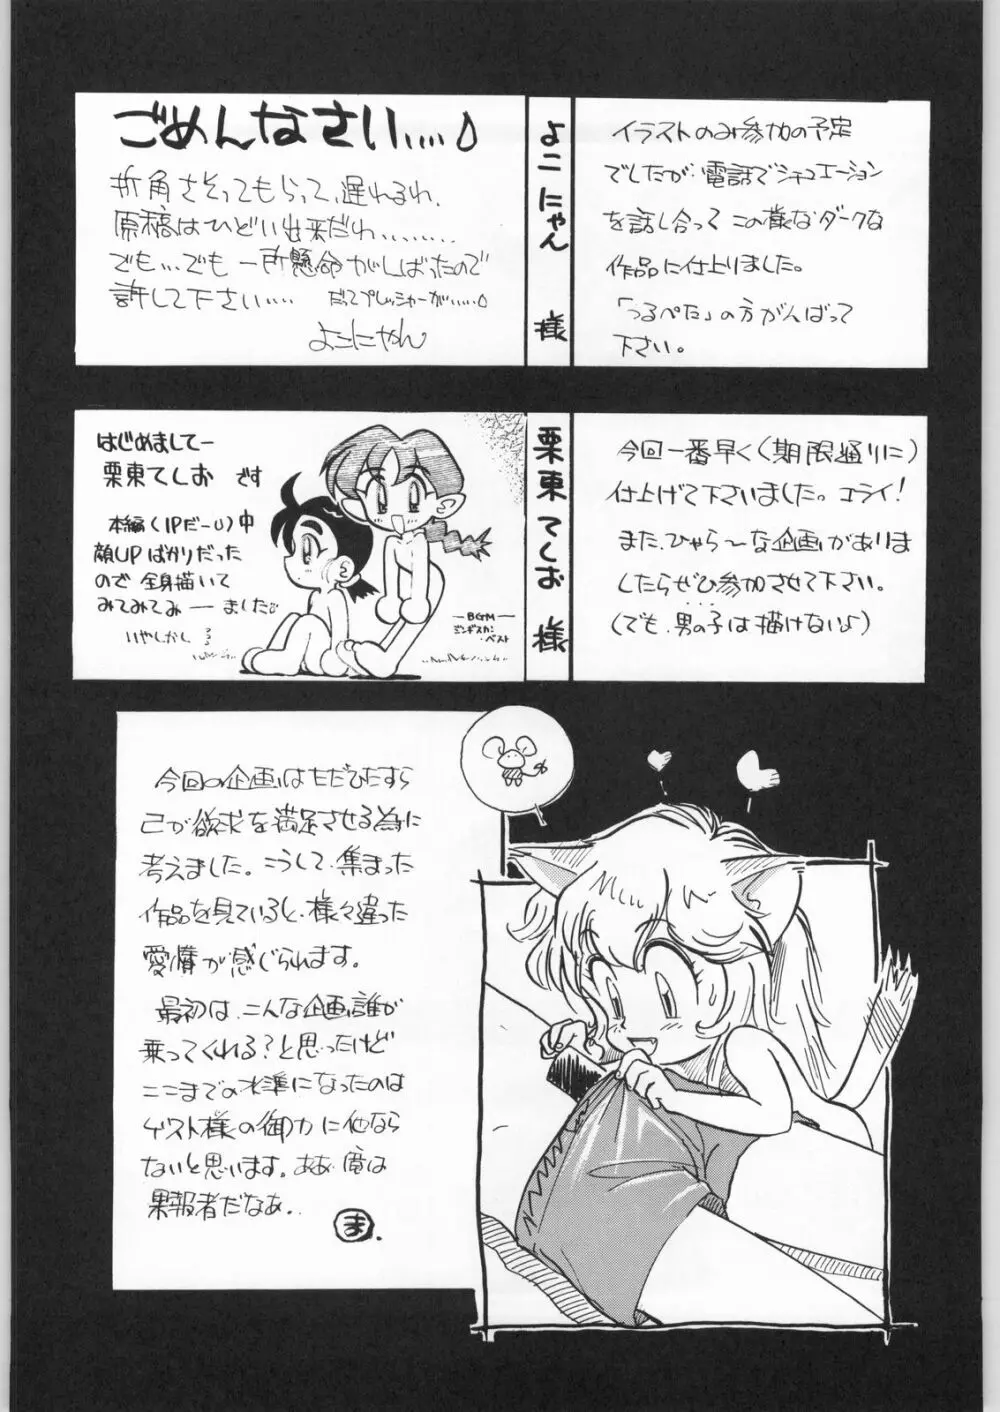 ごめんなさい....
折角さそってもらって、遅れるわ、
原稿はひどい出来だわ、........
でも...でも 一所懸命がんばったので
許して下さい..... だってプレッシャーが.....
よこにゃん
よこにゃん 様
イラストのみ参加の予定
でしたが、電話でシチュエーション
を話し合って この様なダークな
作品に仕上りました。
「つるぺた」の方がんばって
下さい。
はじめましてー
栗東てしお です
本編(1Pだーし)中
顔UPばかりだった
ので 全身描いて
みてみてみーーました
いやしかし
ーBGMー
ジンギスカン
・ベスト
栗東てしお 様
今回一番早く(期限通りに)
仕上げて下さいました。エライ!
また、ひゃら〜な企画がありま
したらぜひ参加させて下さい。
(でも、男の子は描けないよ)
今回の企画はただひたすら
己が欲求を満足させる為に
考えました。こうして、集まった
作品を見ていると、様々違った
愛情が感じられます。
最初は、こんな企画、誰が
乗ってくれる?と思ったけど
ここまでの水準になったのは
ゲスト様の御力に他なら
ないと思います。ああ、俺は
果報者だなあ。
ま.